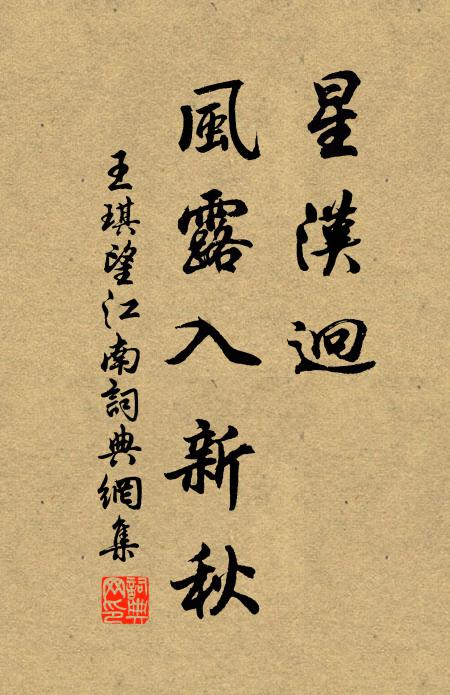 星漢迥
風露入新秋
王琪望江南詞典網集
詞典网印